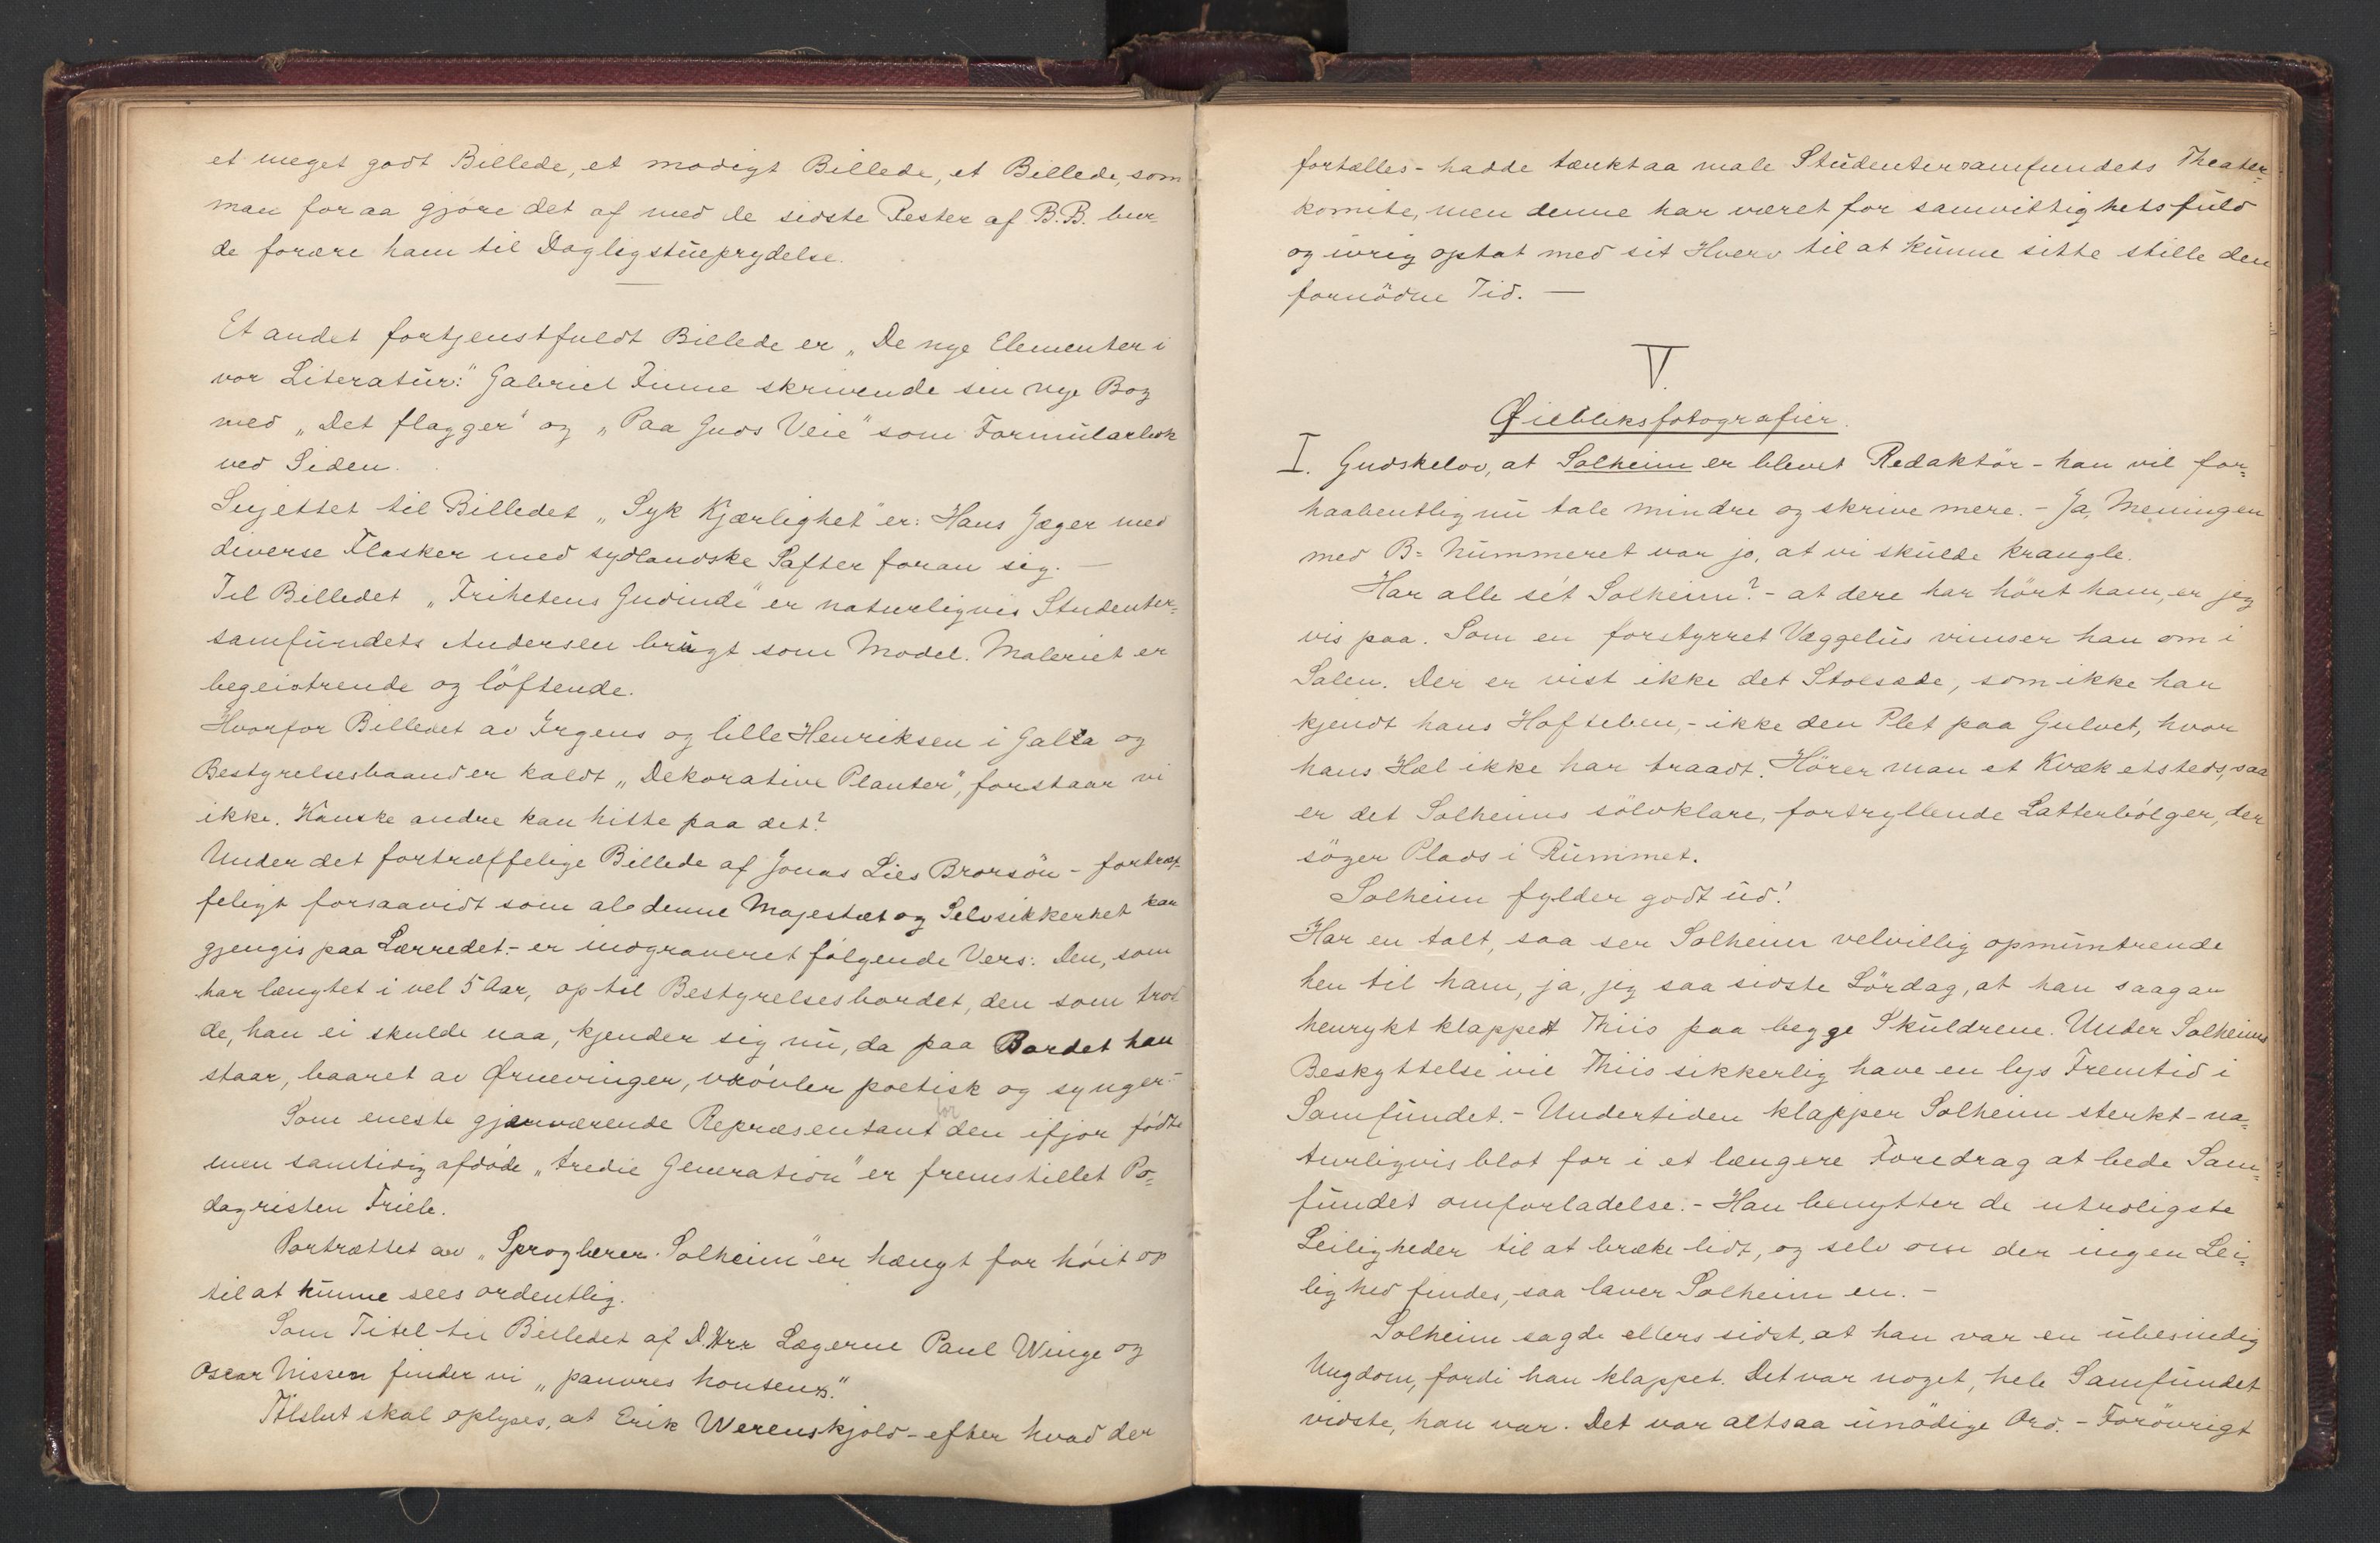 et meget godt Billede, et modigt Billede, et Billede, som
man for aa gjøre det af med de sidste Rester af B.B. bur-
de forære ham til Dagligstueprydelse.
Et andet fortjenstfuldt Billede er „De nye Elementer i
vor Literatur:" Gabriel Finne skrivende sin nye Bog
med „Det flagger" og „Paa Guds Veie" som Formularbok
ved Siden.
Sujettet til Billedet „Syk Kjærlighet" er: Hans Jæger med
diverse Flasker med sydlandske Safter foran sig. —
Til Billedet „Frihetens Gudinde" er naturligvis Studenter=
samfundets Andersen brugt som Model. Maleriet er
begeistrende og löftende.
Hvorfor Billedet av Irgens og lille Henriksen i Galla og
Bestyrelsesbaander kaldt „Dekorative Planter", forstaar vi
ikke. Kanske andre kan hitte paa det?
Under det fortræffelige Billede af Jonas Lies Brorsön - fortræf-
feligt forsaavidt som al denne Majestæt og Selvsikkerhet kan
gjengis paa Lærredet.- er indgraveret fölgende Vers: Den, som
har længtet i vel 5 Aar, op til Bestyrelsesbordet, den som trod
de, han ei skulde naa, kjender sig nu, da paa Bordet han
staar, baaret av Ørnevinger, vrövler poetisk og synger.-
Som eneste gjenværende Repræsentant for den ifjor födte
men samtidig afdøde „tredie Generation" er fremstillet Po=
dagristen Friele.
Portrættet av „Sproglærer Solheim" er hængt for höit op
til at kunne sees ordentlig.
Som Titel til Billedet af D.Hrr Lægerne Paul Winge og
Oscar Nissen finder vi „pauvres honteux."
Tilslut skal oplyses, at Erik Werenskjold - efter hvad der
fortælles - hadde tænkt aa male Studentersamfundets Theater=
komite, men denne har været for samvittighetsfuld
og ivrig optat med sit Hverv til at kunne sitte stille den
fornödne Tid. —
V.
Øieblikksfotografier.
I. Gudskelov, at Solheim er blevet Redaktör - han vil for=
haabentlig nu tale mindre og skrive mere. - Ja, Meningen
med B= Nummeret var jo, at vi skulde krangle.
Har alle sét Solheim? - at dere har hört ham, er jeg
vis paa. Som en forstyrret Væggelus vimser han om i
Salen. Der er vist ikke det Stolsæde, som ikke har
kjendt hans Hofteben, - ikke den Plet paa Gulvet, hvor
hans Hæl ikke har traadt. Hörer man et Kvæk etsteds, saa
er det Solheims sölvklare, fortryllende Latterbölger, der
söger Plads i Rummet.
Solheim fylder godt ud!
Har en talt, saa ser Solheim velvillig opmuntrende
hen til ham, ja, jeg saa sidste Lördag, at han saagar
henrykt klappet Thiis paa begge Skuldrene. Under Solheims
Beskyttelse vil Thiis sikkerlig have en lys Fremtid i
Samfundet. - Undertiden klapper Solheim sterkt - na=
turligvis blot for i et længere Foredrag at bede Sam=
fundet om forladelse. - Han benytter de utroligste
Leiligheder til at bræke lidt, og selv om der ingen Lei=
lighed findes, saa laver Solheim en. -
Solheim sagde ellers sidst, at han var en ubesindig
Ungdom, fordi han klappet. Det var noget, hele Samfundet
vidste, han var. Det var altsaa unödige Ord. - Forövrigt